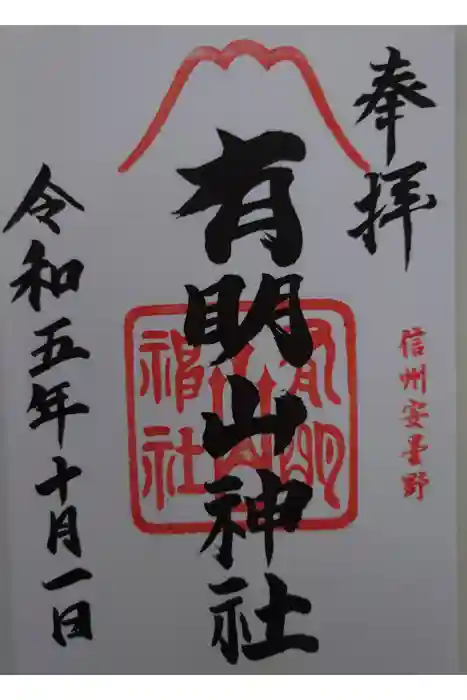 奉拝
信州安曇野
有明山神社
有明山神社
令和五年十月一日